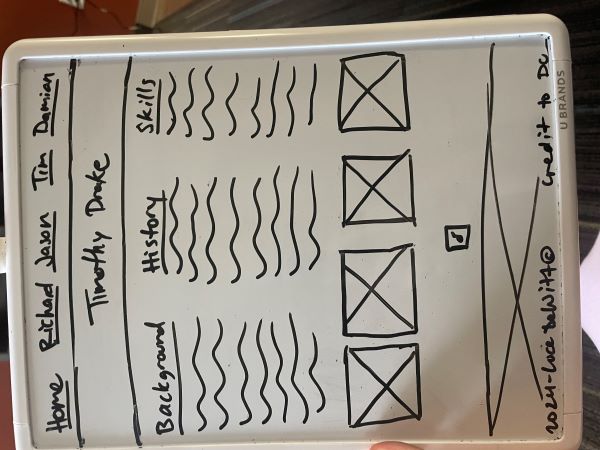 Home Richard Jason Tim Damian
Timothy Drake
Background History Skills
2024-Luce DeWitt©
Credit to DC
U BRANDS